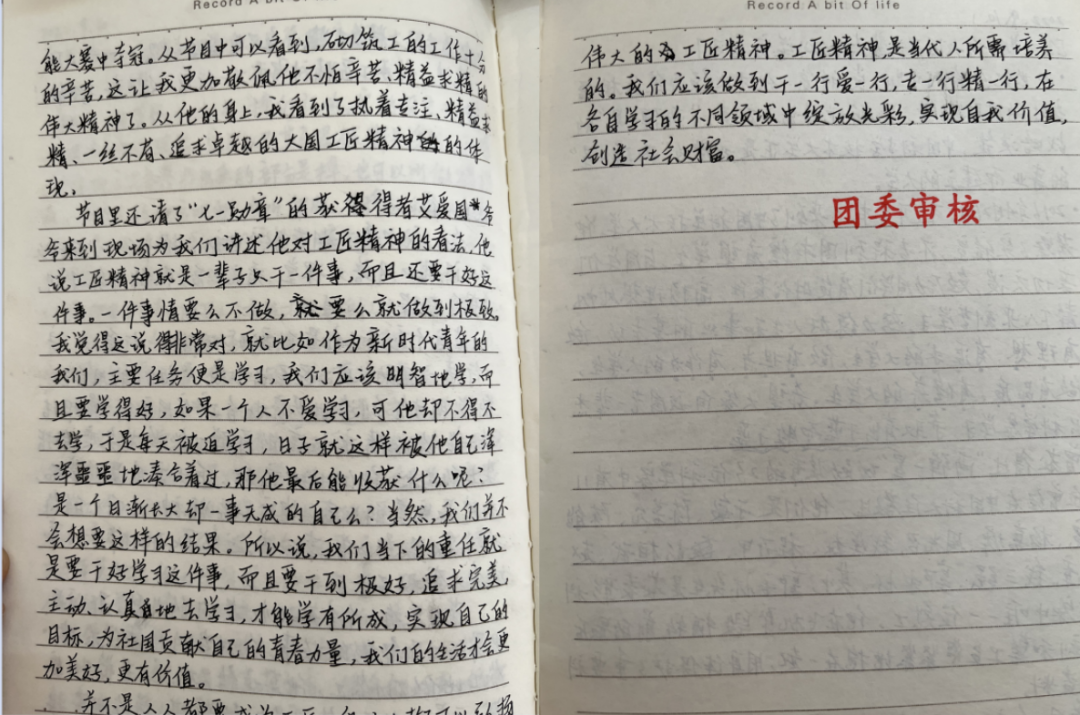 Record A bit Of life
能大赛中夺冠。从节目中可以看到，砌筑工的工作十分
的辛苦，这让我更加敬佩他不怕辛苦、精益求精的
伟大精神了。从他的身上，我看到了执着专注、精益求
精、一丝不苟、追求卓越的大国工匠精神的体
现。
节目里还请了“七一勋章”的获得者艾爱国爷
爷来到现场为我们讲述他对工匠精神的看法，他
说工匠精神就是一辈子只干一件事，而且还要干好这
件事。一件事情要么不做，就要么就做到极致。
我觉得这说得非常对，就比如作为新时代青年的
我们，主要任务便是学习，我们应该明智地学，而
且要学得好，如果一个人不爱学习，可他却不得不
去学，于是每天被迫学习，日子就这样被他自己浑
浑噩噩地凑合着过，那他最后能收获什么呢？
是一个日渐长大却一事无成的自己么？当然，我们并不
会想要这样的结果。所以说，我们当下的重任就
是要干好学习这件事，而且要干到极好，追求完美，
主动、认真地去学习，才能学有所成，实现自己的
目标，为祖国贡献自己的青春力量，我们的生活才会更
加美好，更有价值。
并不是人人都要成为工匠
Record A bit Of life
伟大的工匠精神。工匠精神是当代人所需培养
的。我们应该做到干一行爱一行，专一行精一行，在
各自学习的不同领域中绽放光彩，实现自我价值，
创造社会财富。
团委审核